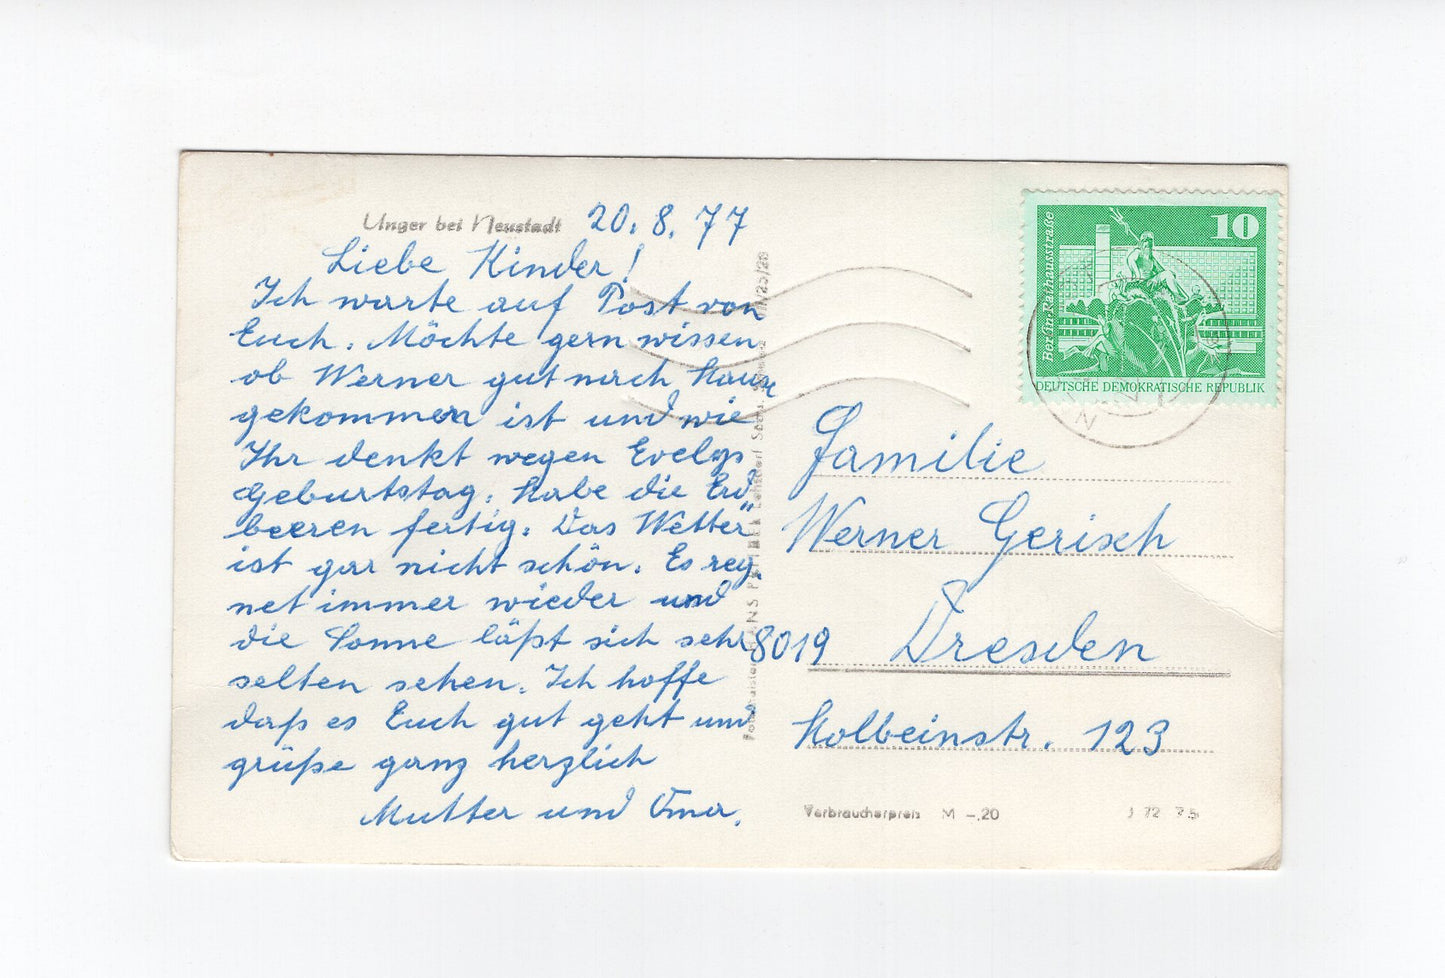 Unger bei Neustadt 20.8.77
Liebe Kinder!
Ich warte auf Post von
Euch. Möchte gern wissen
ob Werner gut nach Hause
gekommen ist und wie
Ihr denkt wegen Evelys
Geburtstag. Habe die Erd"
beeren fertig. Das Wetter
ist gar nicht schön. Es reg.
net immer wieder und
die Sonne läßt sich sehr
selten sehen. Ich hoffe
daß es Euch gut geht und
grüße ganz herzlich
Mutter und Oma.
10
Berlin-Rathausstraße
DEUTSCHE DEMOKRATISCHE REPUBLIK
Familie
Werner Gerisch
8019 Dresden
Holbeinstr. 123
Verbraucherpreis M -.20